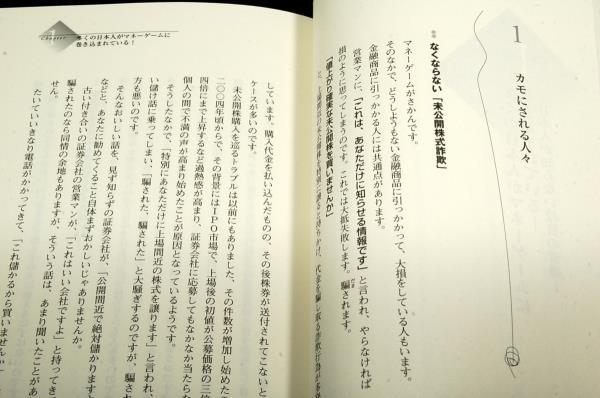 1
カモにされる人々
なくならない「未公開株式詐欺」
マネーゲームがさかんです。
そのなかで、どうしようもない金融商品に引っかかって、大損をしている人もいます。
金融商品に引っかかる人には共通点があります。
営業マンに、「これは、あなただけに知らせる情報です」と言われ、やらなければ
損のように思ってしまうのです。これでは大抵失敗します。騙されます。
「値上がり確実な未公開株を買いませんか」
Chapter
多くの日本人がマネーゲームに
巻き込まれている!
しています。購入代金を払い込んだものの、その後株券が送付されてこないと
ケースが多いのです。
未公開株購入を巡るトラブルは以前にもありました。その件数が増加し始めた
二〇〇四年頃からで、その背景にはIPO市場で、上場後の初値が公募価格の三倍
四倍にまで上昇するなど過熱感が高まり、証券会社に応募してもなかなか当たらな
個人の間で不満の声が高まり始めたことが原因となっているようです。
そうしたなかで、「特別にあなただけに上場間近の株式を譲ります」と言われ、
い儲け話に乗ってしまい、「騙された、騙された」と大騒ぎするのですが、騙
方も悪いのです。
そんなおいしい話を、見ず知らずの証券会社が、「公開間近で絶対儲かりますと
などと、あなたに勧めてくること自体まずおかしいじゃありませんか。
古い付き合いの証券会社の営業マンが、「これはいい会社ですよ」と持ってき
騙されたのなら同情の余地もありますが、そういう話は、あまり聞いたことがあ
せん。
たいていいきなり電話がかかってきて、「これ儲かるから買いませんか」